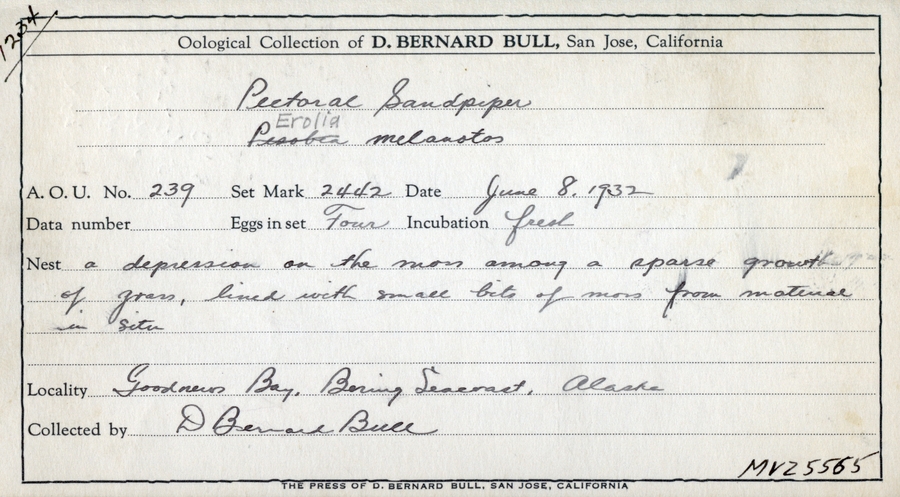 1234
Oological Collection of D. BERNARD BULL, San Jose, California
Pectoral Sandpiper
Erolia
Pisobia melanotos
A. O. U. No. 239 Set Mark 2442 Date June 8. 1932
Data number Eggs in set Four Incubation fresh
Nest a depression on the moss among a sparse growth
of grass, lined with small bits of moss from material
in situ
Locality Goodnews Bay, Bering Seacoast, Alaska
Collected by D Bernard Bull
MVZ5565
THE PRESS OF D. BERNARD BULL, SAN JOSE, CALIFORNIA